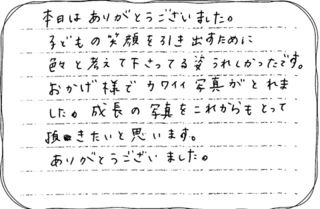 本日はありがとうございました。
子どもの笑顔を引き出すために
色々と考えて下さってる姿うれしかったです。
おかげ様でカワイイ写真がとれま
した。成長の写真をこれからもとって
頂きたいと思います。
ありがとうございました。